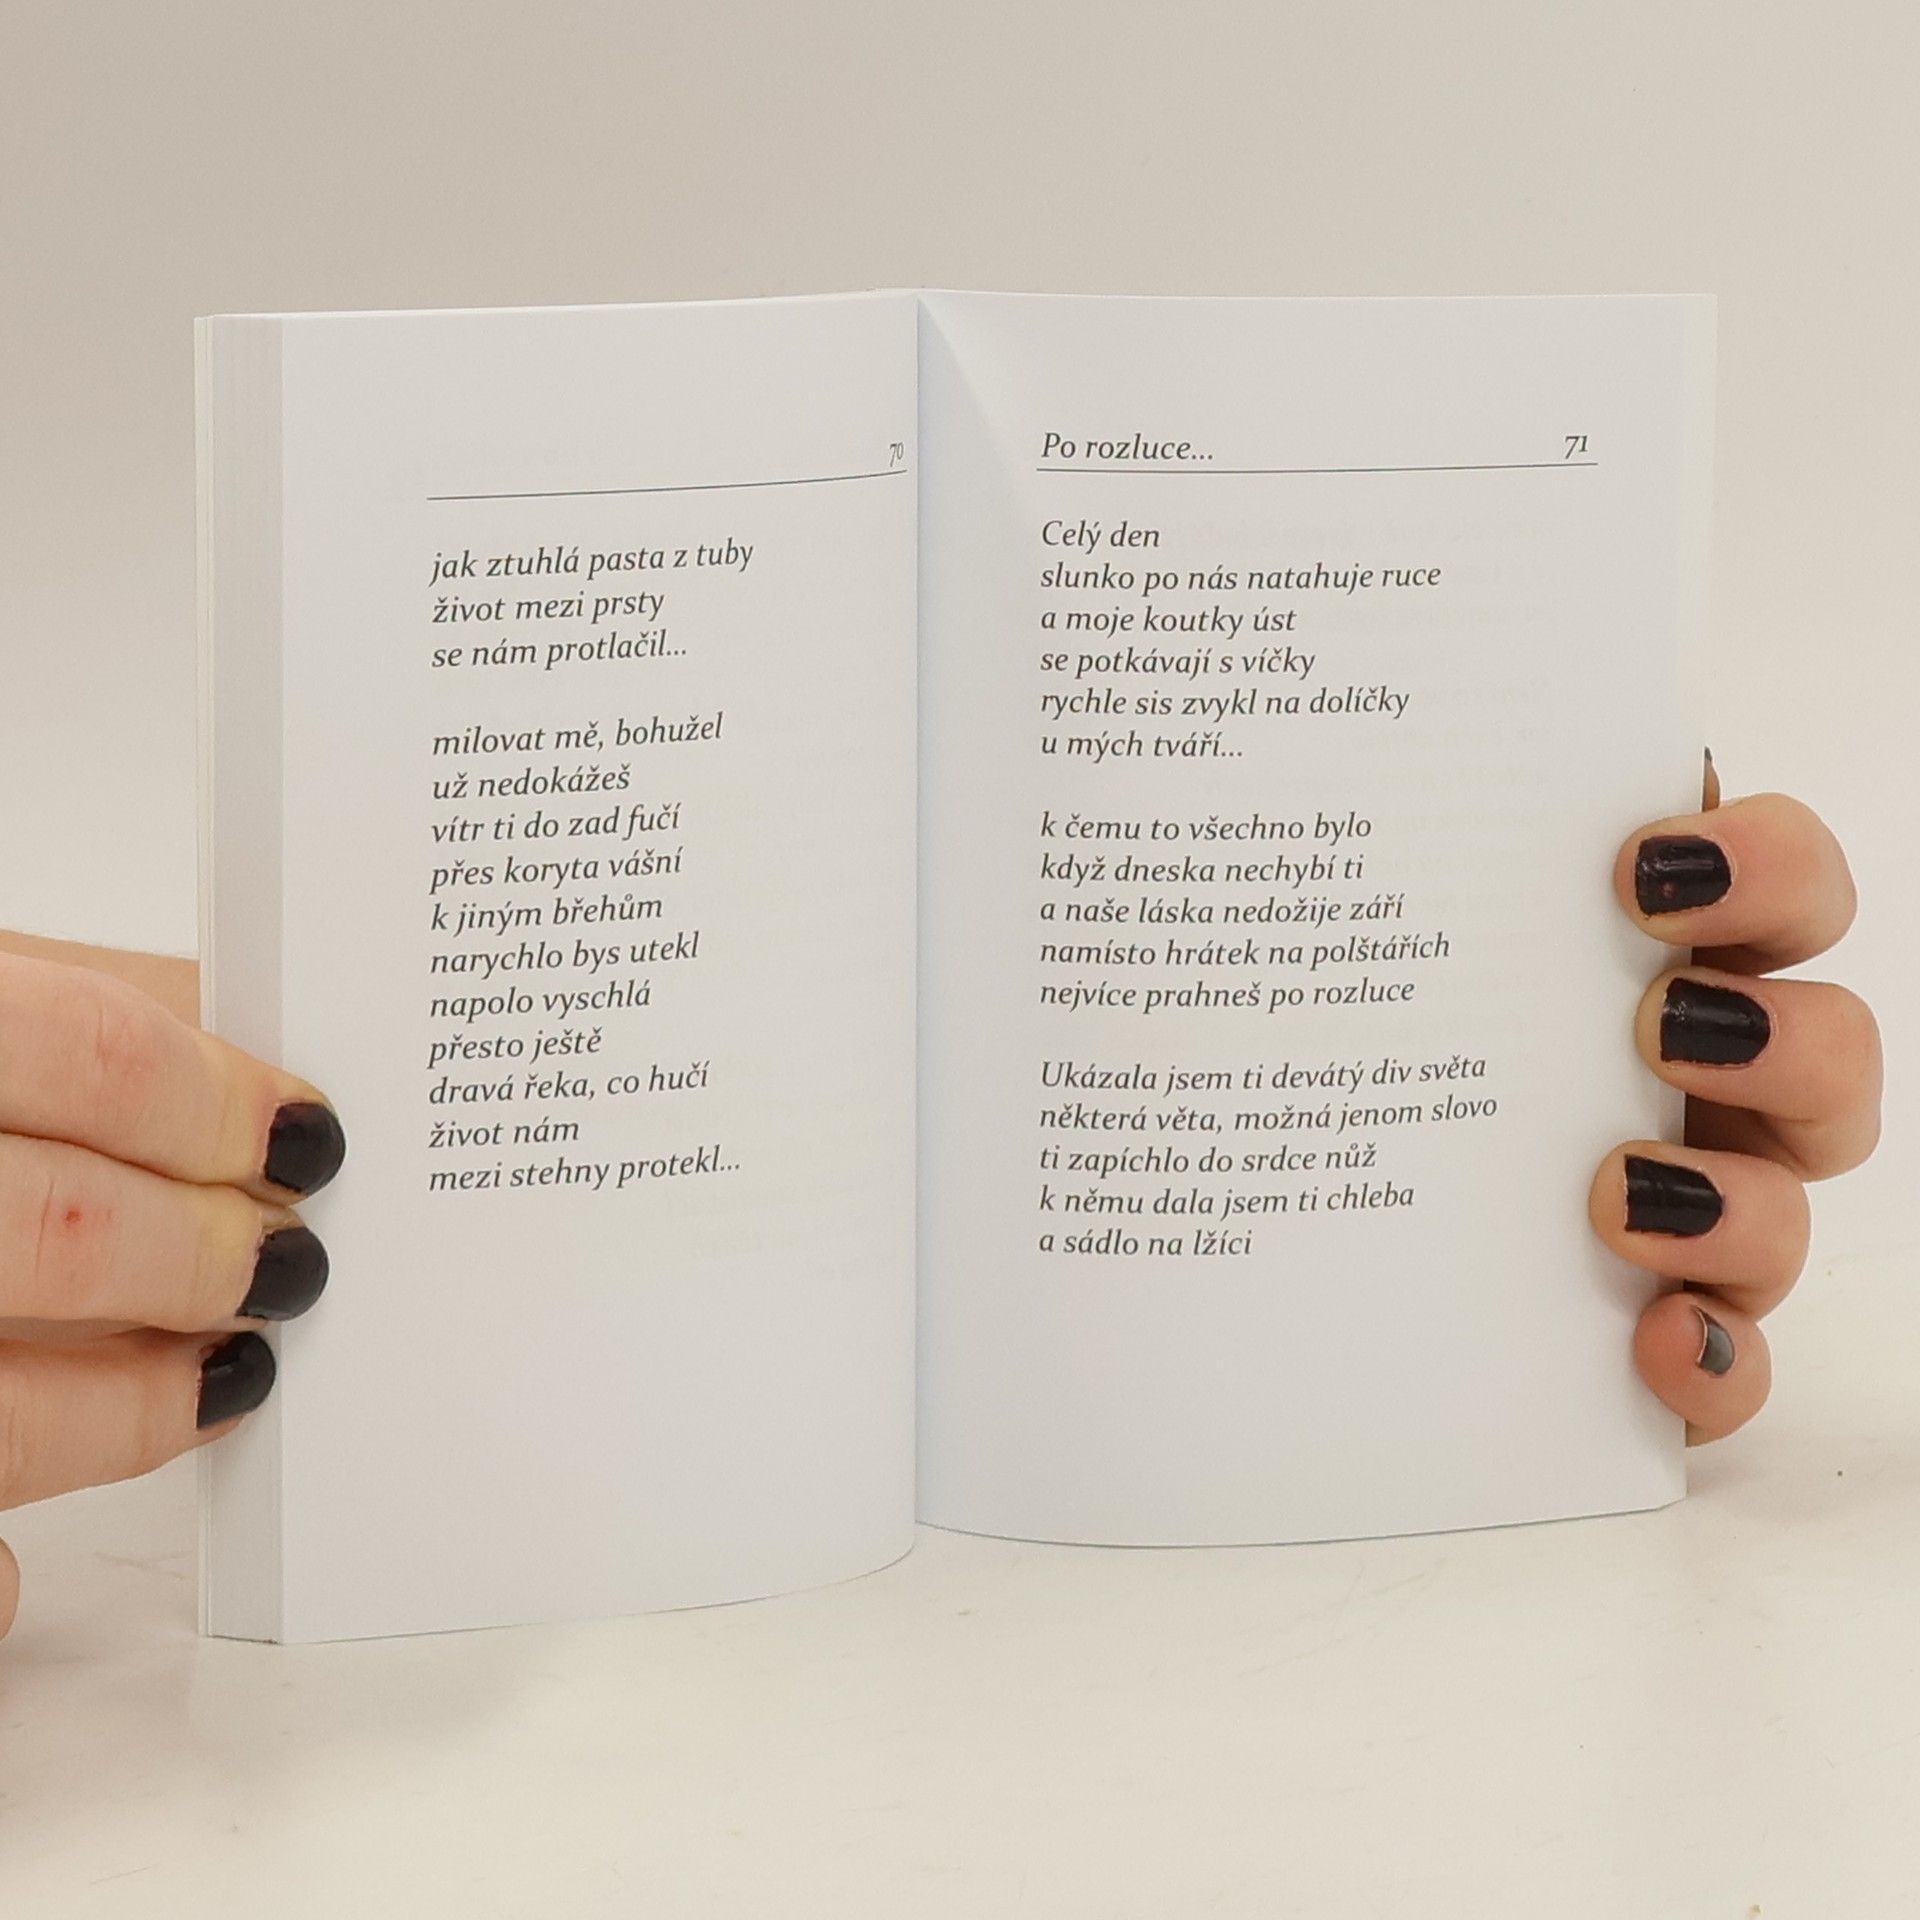 70
jak ztuhlá pasta z tuby
život mezi prsty
se nám protlačil...
milovat mě, bohužel
už nedokážeš
vítr ti do zad fučí
přes koryta vášní
k jiným břehům
narychlo bys utekl
napolo vyschlá
přesto ještě
dravá řeka, co hučí
život nám
mezi stehny protekl...
Po rozluce... 71
Celý den
slunko po nás natahuje ruce
a moje koutky úst
se potkávají s víčky
rychle sis zvykl na dolíčky
u mých tváří...
k čemu to všechno bylo
když dneska nechybí ti
a naše láska nedožije září
namísto hrátek na polštářích
nejvíce prahneš po rozluce
Ukázala jsem ti devátý div světa
některá věta, možná jenom slovo
ti zapíchlo do srdce nůž
k němu dala jsem ti chleba
a sádlo na lžíci